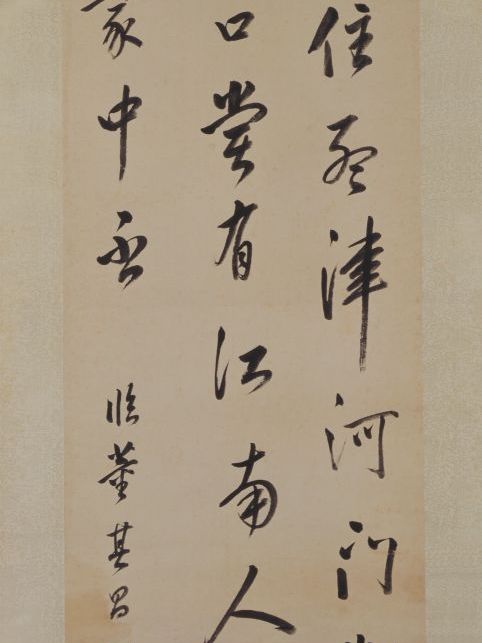 住孟津河門
口常有江南人
家中否
臨董其昌